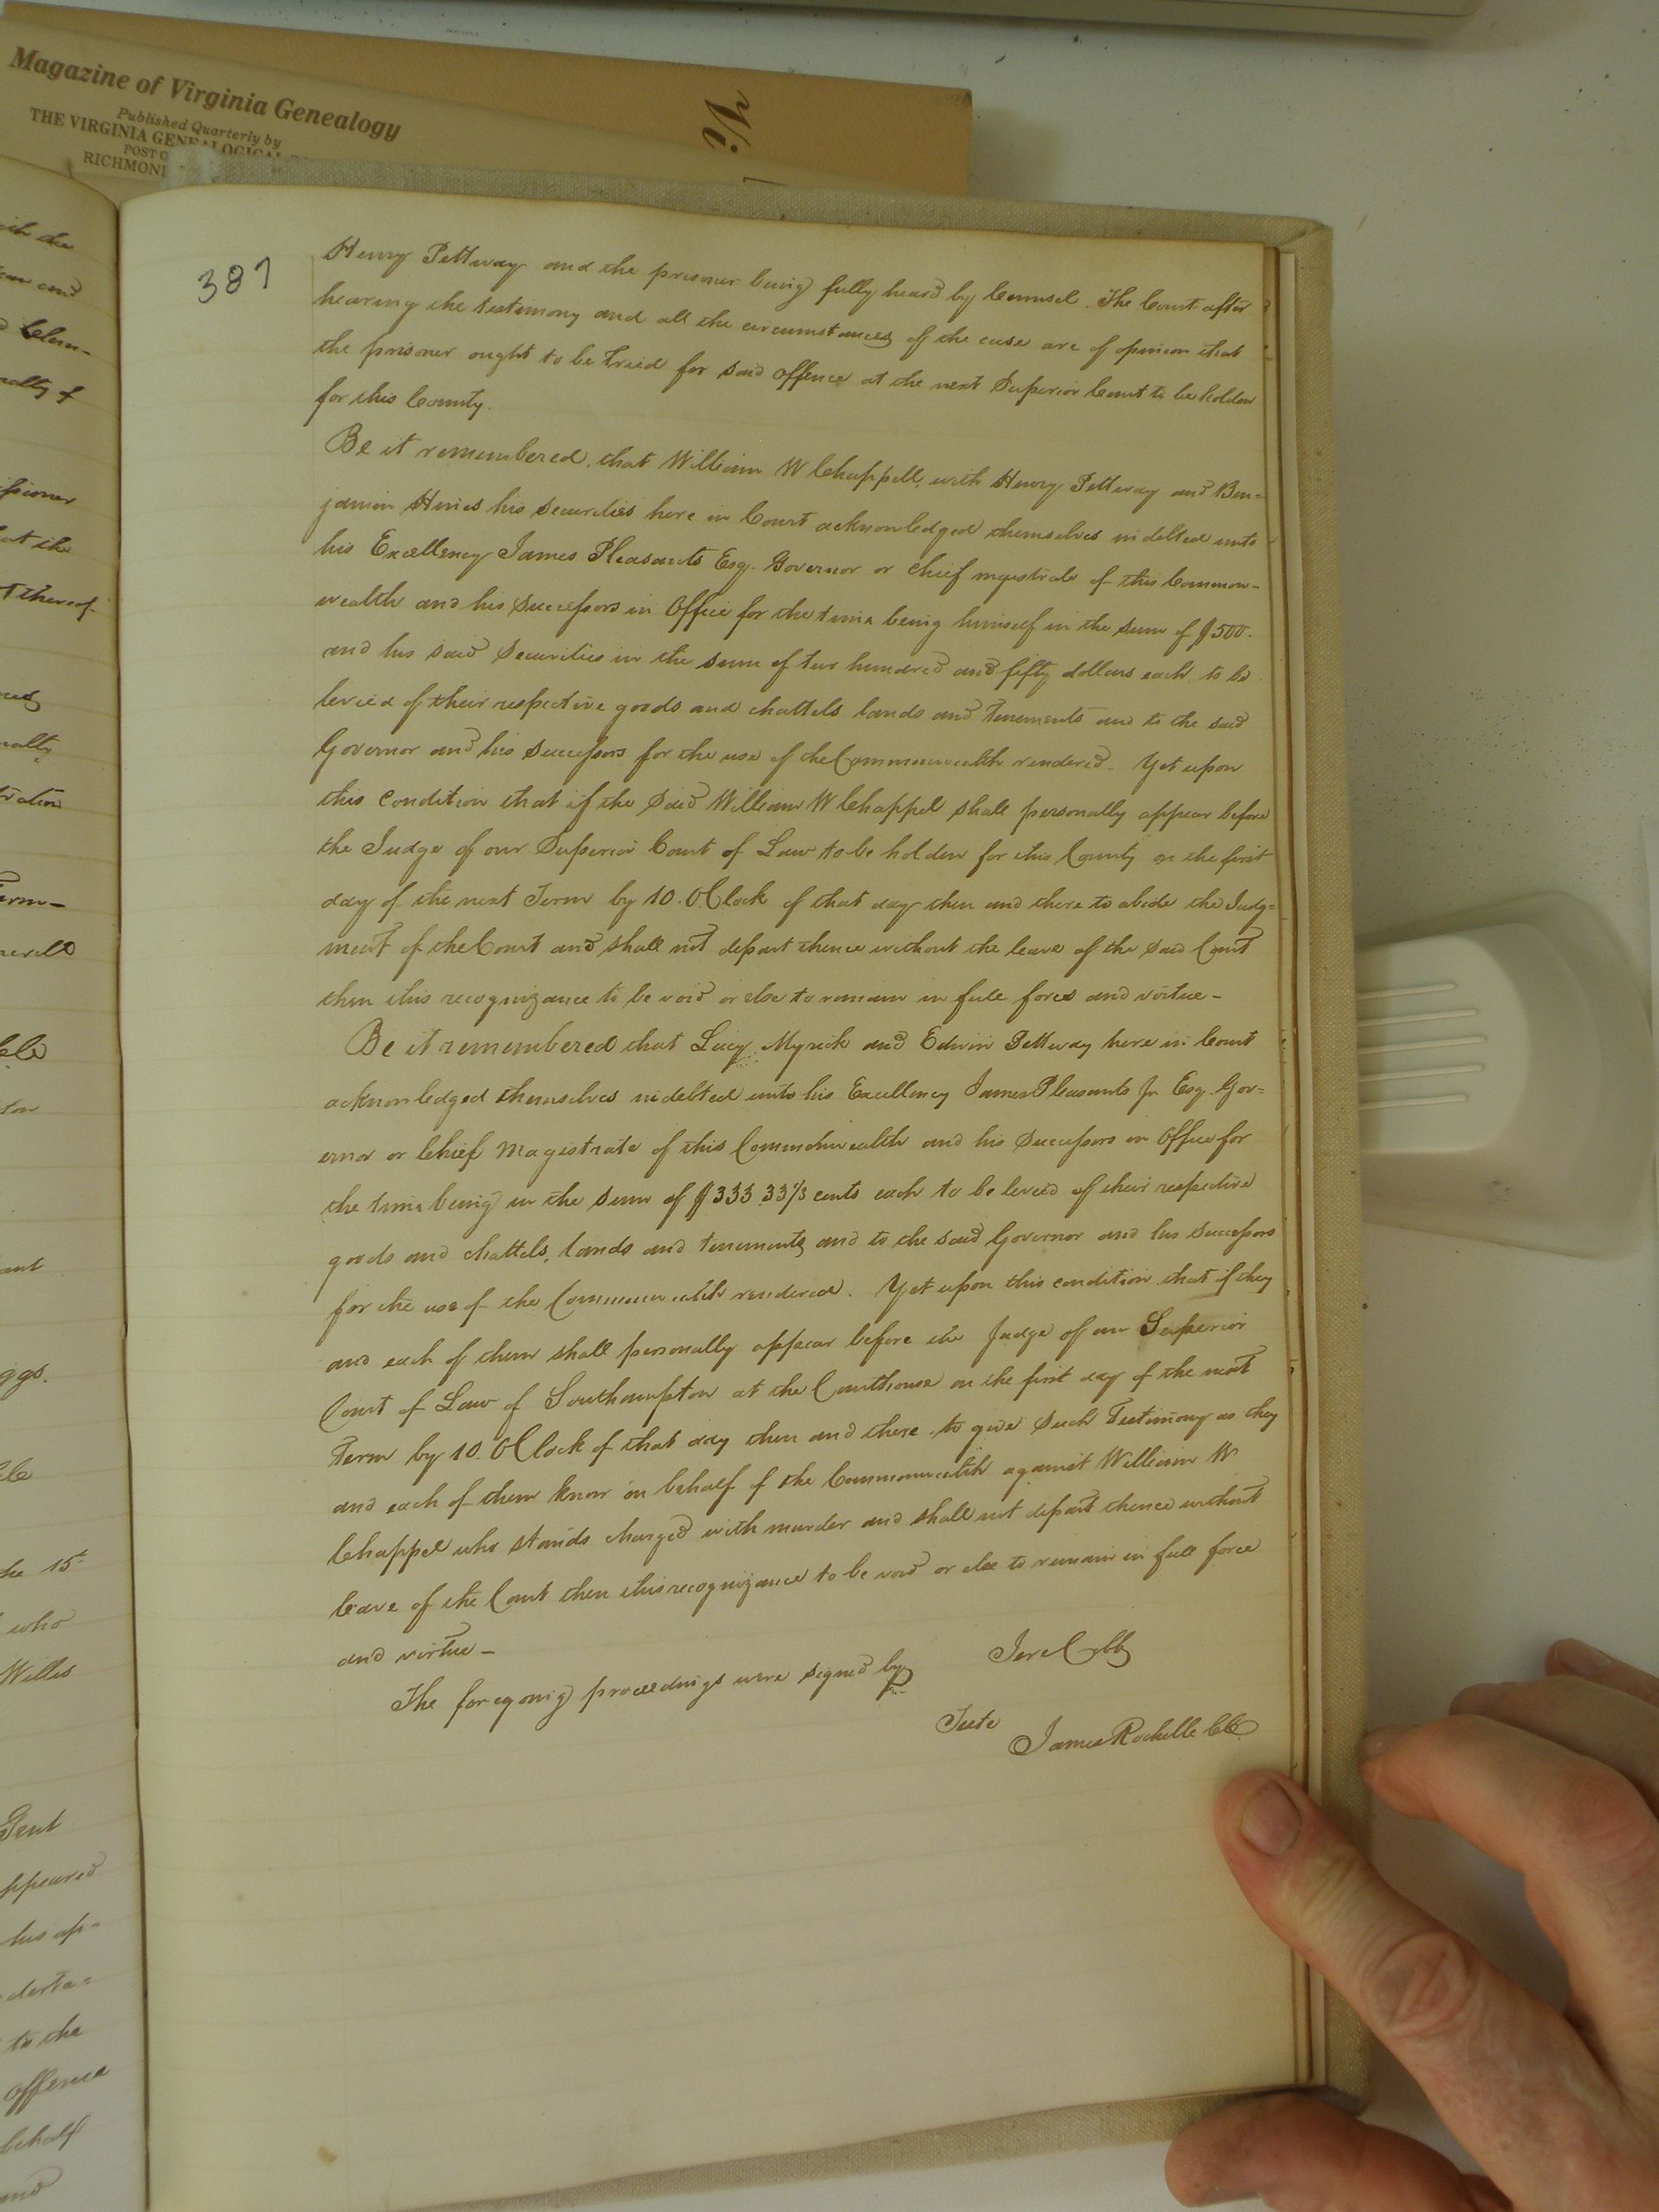 Magazine of Virginia Genealogy
Published Quarterly by
THE VIRGINIA GENEALOGICAL
POST O
RICHMON
Vi
387
Henry Pettway and the prisoner being fully heard by Counsel. The Court after
hearing the testimony and all the circumstances of the case are of opinion that
the prisoner ought to be tried for said offence at the next Superior Court to be holden
for this County.
Be it remembered, that William W Chappell, with Henry Pettway and Ben=
jamin Hines his securities here in Court acknowledged themselves indebted unto
his Excellency James Pleasants Esq. Governor or chief magistrate of this Common-
wealth and his successors in Office for the time being himself in the sum of $500.
and his said securities in the sum of two hundred and fifty dollars each to be
levied of their respective goods and chattels lands and tenements and to the said
Governor and his successors for the use of the Commonwealth rendered. Yet upon
this condition that if the said William W Chappel shall personally appear before
the Judge of our Superior Court of Law to be holden for this County on the first
day of the next Term by 10. OClock of that day then and there to abide the Judg=
ment of the Court and shall not depart thence without the leave of the said Court
then this recognizance to be void or else to remain in full force and virtue-
Be it remembered that Lucy Myrick and Edwin Pettway here in Court
acknowledged themselves indebted unto his Excellency James Pleasants Jr Esq. Gov=
ernor or Chief Magistrate of this Commonwealth and his successors in Office for
the time being in the sum of $333.33⅓ cents each to be levied of their respective
goods and chattels, lands and tenements and to the said Governor and his successors
for the use of the Commonwealth rendered. Yet upon this condition that if they
and each of them shall personally appear before the Judge of our Superior
Court of Law of Southampton at the Courthouse on the first day of the next
Term by 10. OClock of that day then and there to give such Testimony as they
and each of them know on behalf of the Commonwealth against William W
Chappel who stands charged with murder and shall not depart thence without
leave of the Court then this recognizance to be void or else to remain in full force
and virtue-
The foregoing proceedings were signed by Jere Cobb
Teste
James Rochelle CC